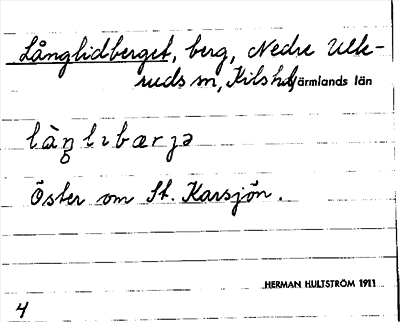 Långlidberget, berg, Nedre Ulle-
ruds sn, Kils hd Värmlands län
làŋlibærjə
Öster om St. Karsjön.
HERMAN HULTSTRÖM 1911
4